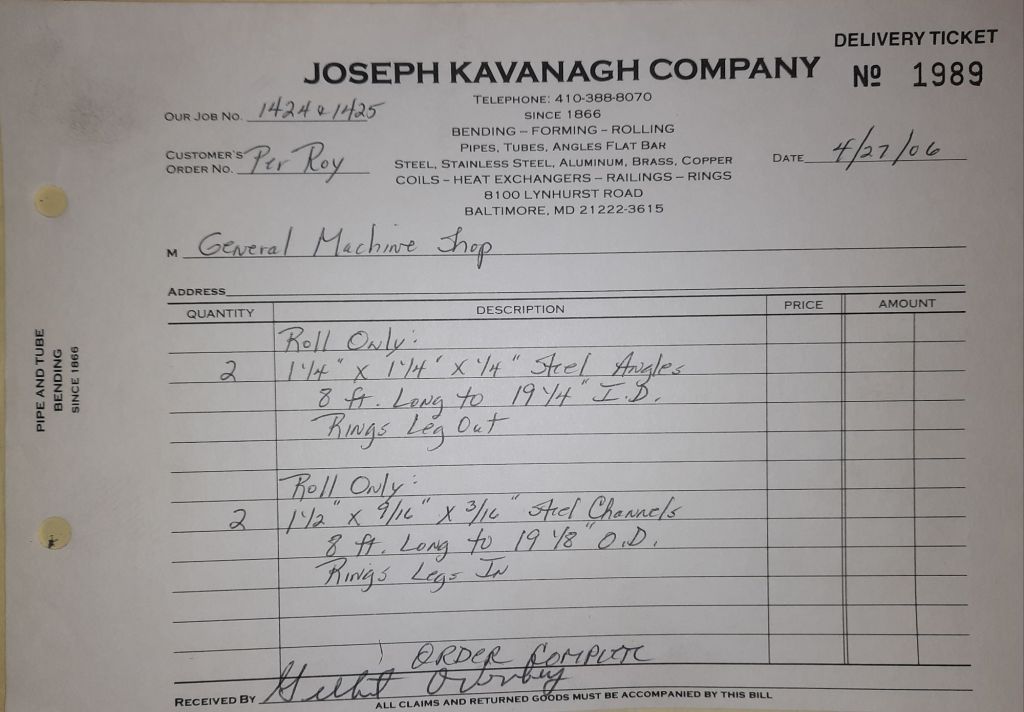 DELIVERY TICKET
JOSEPH KAVANAGH COMPANY
Nº 1989
TELEPHONE: 410-388-8070
SINCE 1866
BENDING – FORMING – ROLLING
PIPES, TUBES, ANGLES FLAT BAR
STEEL, STAINLESS STEEL, ALUMINUM, BRASS, COPPER
COILS – HEAT EXCHANGERS – RAILINGS – RINGS
8100 LYNHURST ROAD
BALTIMORE, MD 21222-3615
OUR JOB NO. 1424 & 1425
CUSTOMER'S ORDER NO. Per Roy
DATE 4/27/06
M General Machine Shop
ADDRESS
QUANTITY DESCRIPTION PRICE AMOUNT
Roll Only:
2 1 1/4" X 1 1/4" X 1/4" Steel Angles
8 ft. Long to 19 1/4" I.D.
Rings Leg Out
Roll Only:
2 1 1/2" X 9/16" X 3/16" Steel Channels
8 ft. Long to 19 1/8" O.D.
Rings Legs In
ORDER COMPLETE
RECEIVED BY
ALL CLAIMS AND RETURNED GOODS MUST BE ACCOMPANIED BY THIS BILL
PIPE AND TUBE
BENDING
SINCE 1866